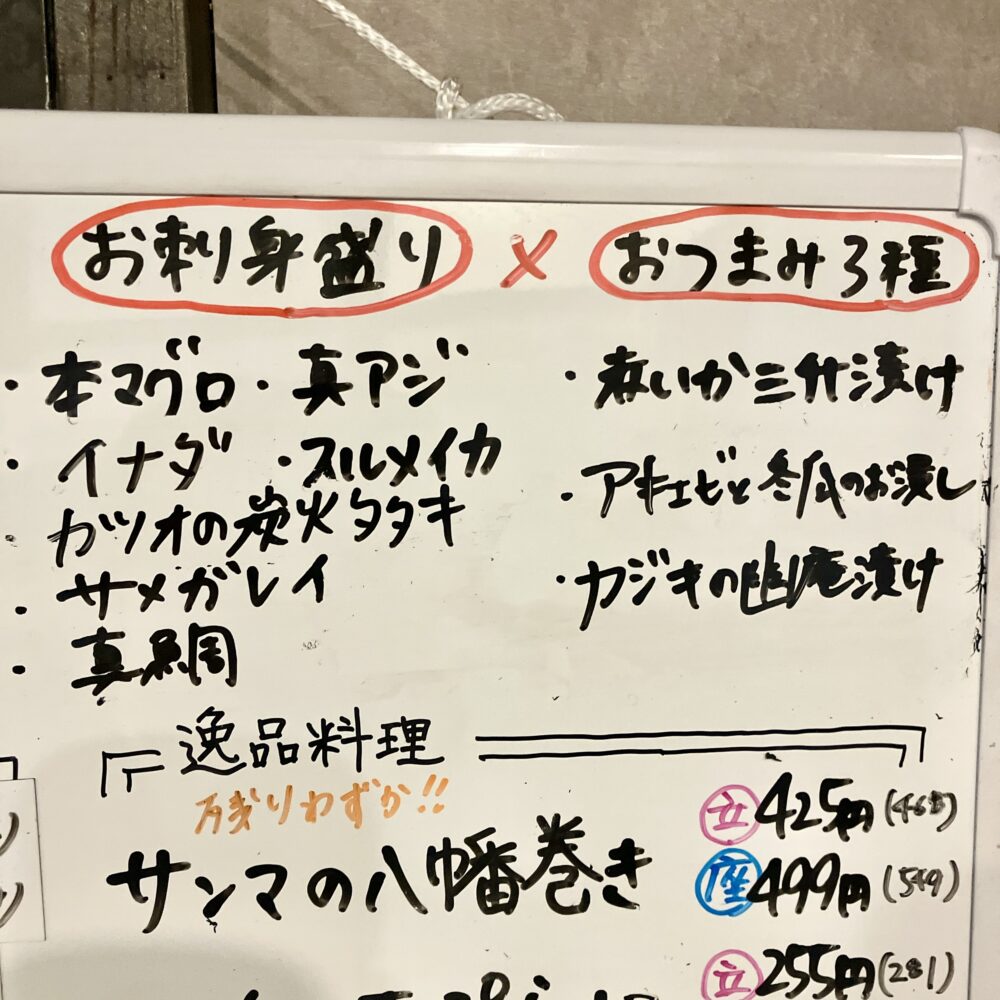 お刺身盛り × おつまみ3種
・本マグロ・真アジ
・イナダ ・スルメイカ
・カツオの炭火タタキ
・サメガレイ
・真鯛
・赤いか三升漬け
・アキエビと冬瓜のお浸し
・カジキの幽庵漬け
逸品料理
残りわずか!!
サンマの八幡巻き
立 425円(468)
座 499円(549)
立 255円(281)